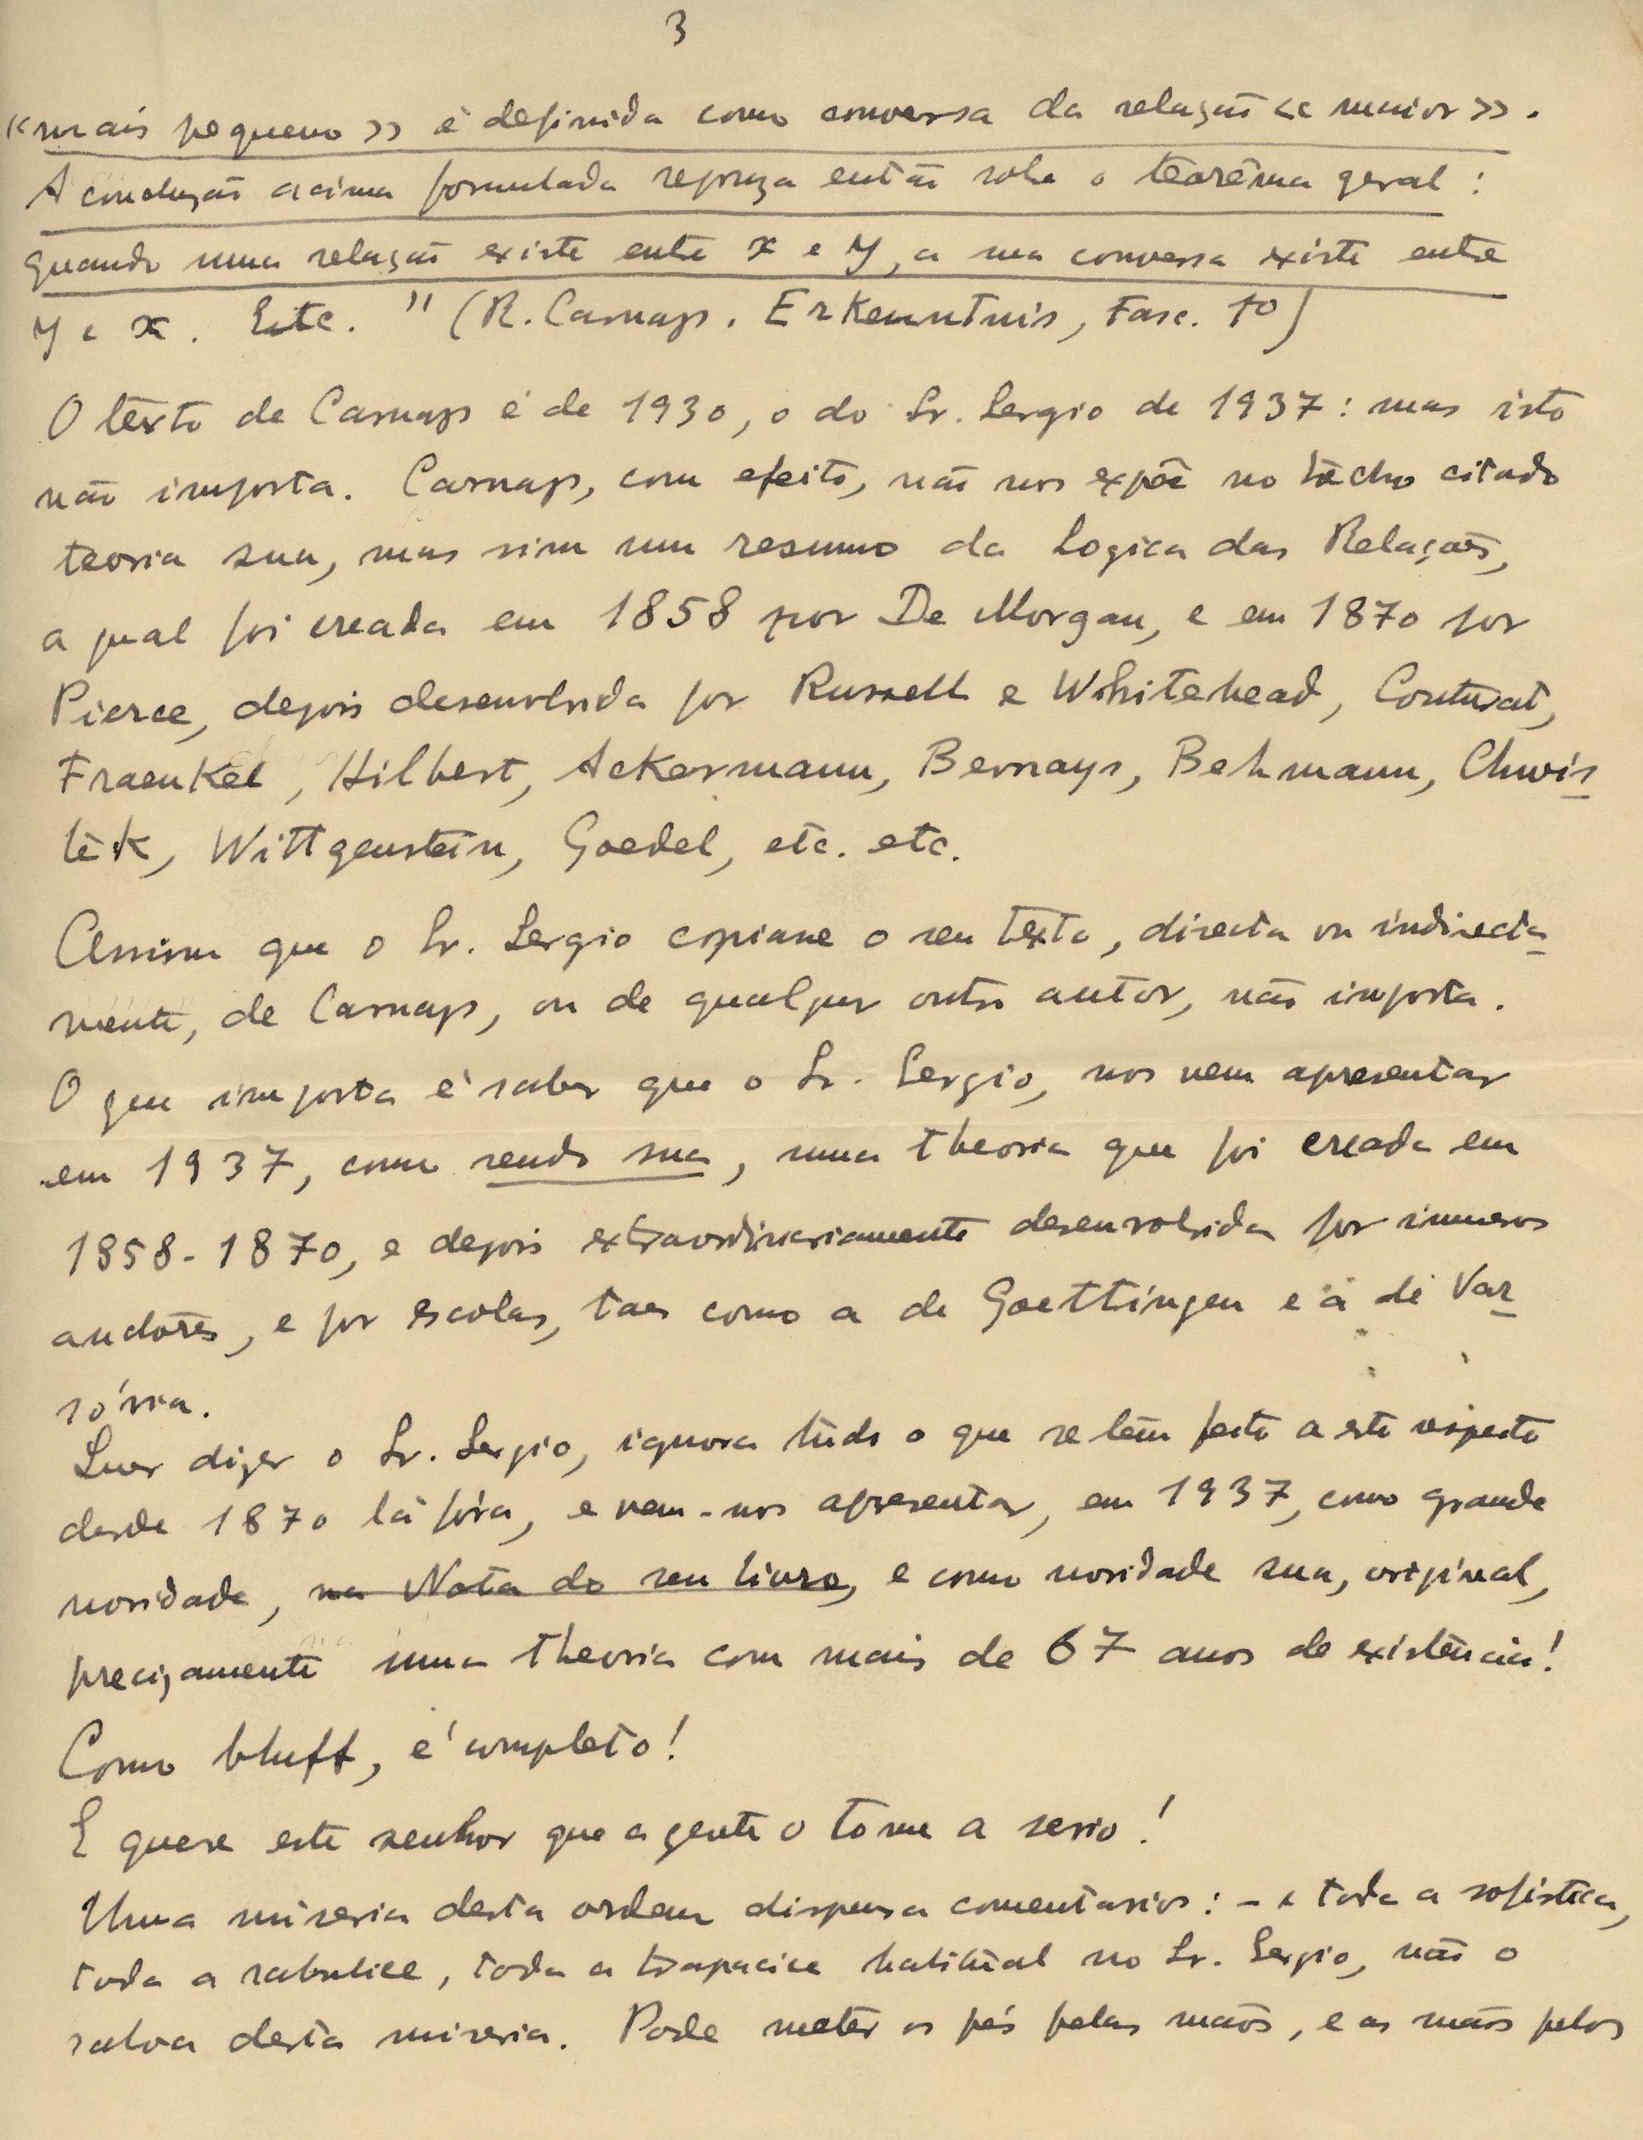 3
«mais pequeno» é definida como conversa da relação «maior».
A conclusão acima formulada repouza então sobre o teorêma geral:
quando uma relação existe entre x e y, a sua conversa existe entre
y e x. Etc." (R. Carnap. Erkenntnis, Fasc. 10)
O texto de Carnap é de 1930, o do Sr. Sergio de 1937: mas isto
não importa. Carnap, com efeito, não nos expõe no trecho citado
teoria sua, mas sim um resumo da Logica das Relações,
a qual foi creada em 1858 por De Morgan, e em 1870 por
Pierce, depois desenvolvida por Russell e Whitehead, Couturat,
Fraenkel, Hilbert, Ackermann, Bernays, Behmann, Chwis
tek, Wittgenstein, Goedel, etc. etc.
Assim que o Sr. Sergio copiasse o seu texto, directa ou indirecta
mente, de Carnap, ou de qualquer outro autor, não importa.
O que importa é saber que o Sr. Sergio, nos vem apresentar
em 1937, como sendo sua, uma theoria que foi creada em
1858-1870, e depois extraordinariamente desenvolvida por inumeros
auctores, e por escolas, taes como a de Goettingen e a de Var
sóvia.
Quer dizer o Sr. Sergio, ignora tudo o que se tem feito a este respeito
desde 1870 lá fóra, e vem-nos apresentar, em 1937, como grande
novidade, na Nota do seu livro, e como novidade sua, original,
precizamente uma theoria com mais de 67 anos de existência!
Como bluff, é completo!
E quere este senhor que a gente o tome a serio!
Uma miseria desta ordem dispensa comentarios: - e toda a sofistica,
toda a rabulice, toda a trapacice habitual no Sr. Sergio, não o
salva desta miseria. Pode meter os pés pelas mãos, e as mãos pelos